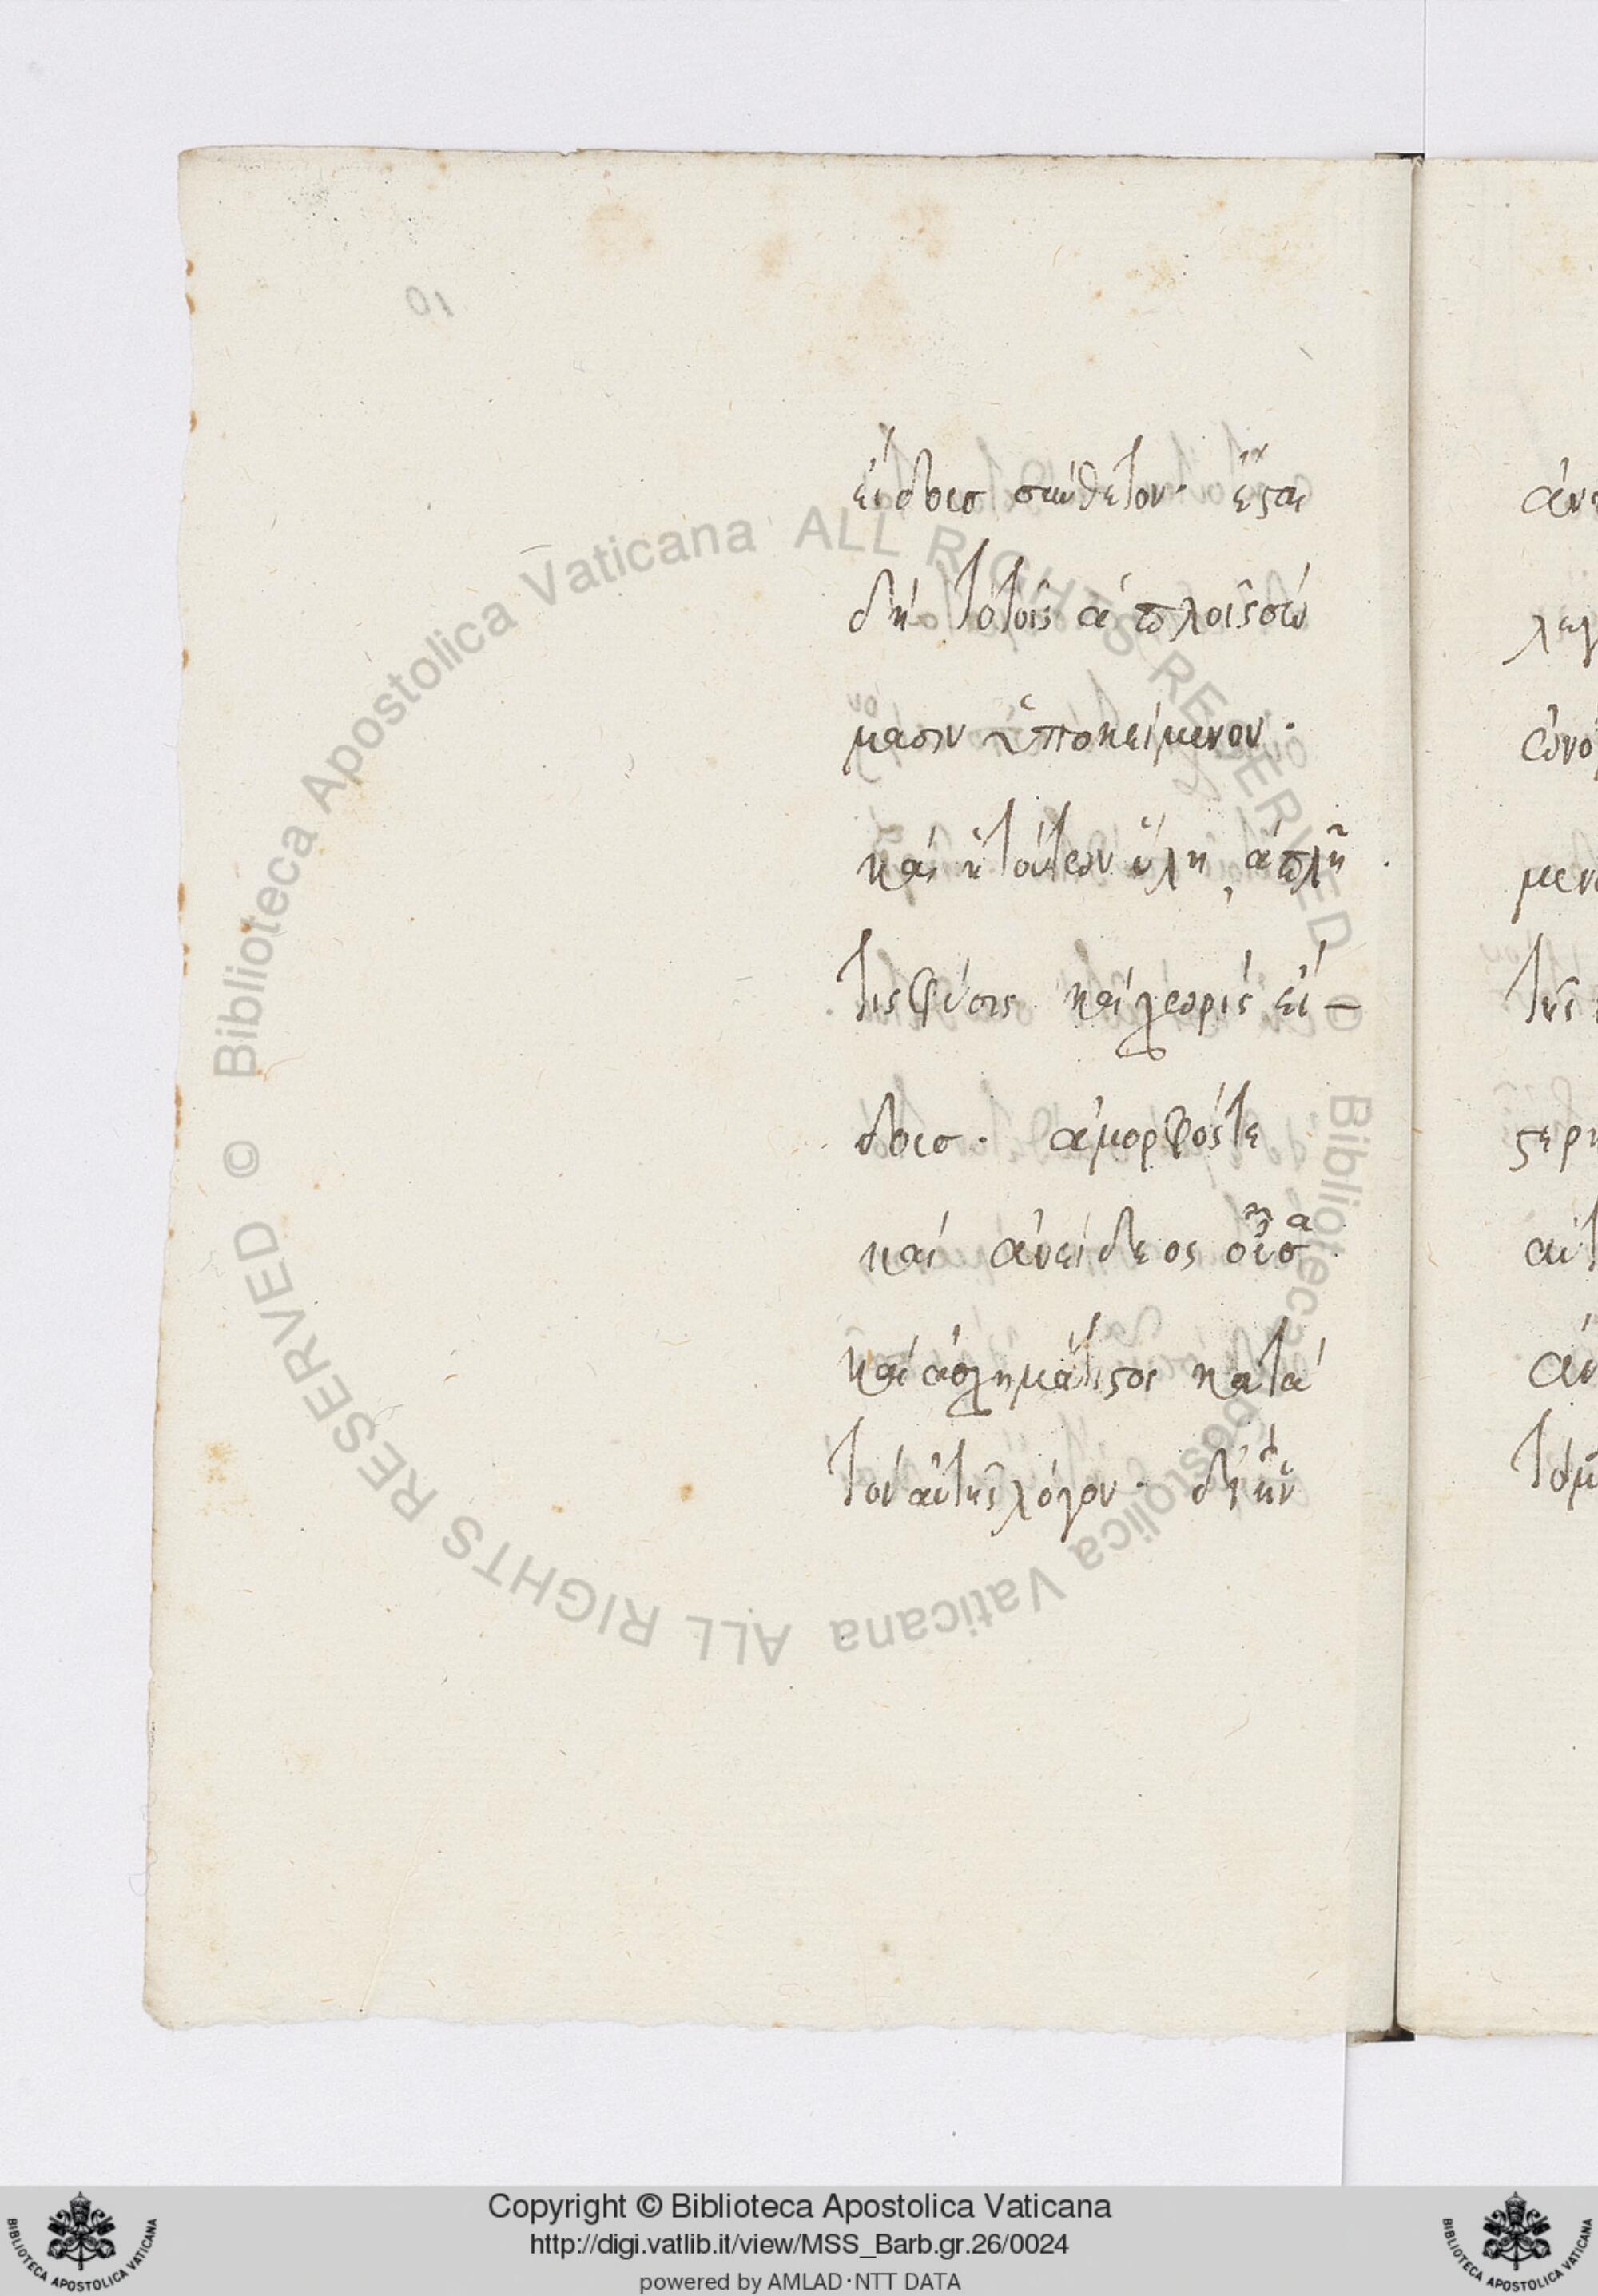 εἴδους σύνθετον· ἔσται
δὴ τὸ τοῖς ἁπλοῖς σώ
μασιν ὑποκείμενον·
καὶ ἡ τούτων ὕλη, ἁπλῆ
τις φύσις καὶ χωρὶς εἴ-
δους· ἄμορφός τε
καὶ ἀνείδεος οὖσα
καὶ ἀσχημάτιστος κατὰ
τὸν αὑτῆς λόγον· δι' ἣν
10
Copyright © Biblioteca Apostolica Vaticana
http://digi.vatlib.it/view/MSS_Barb.gr.26/0024
powered by AMLAD·NTT DATA
BIBLIOTECA APOSTOLICA VATICANA
BIBLIOTECA APOSTOLICA VATICANA
© Biblioteca Apostolica Vaticana ALL RIGHTS RESERVED
© Biblioteca Apostolica Vaticana ALL RIGHTS RESERVED